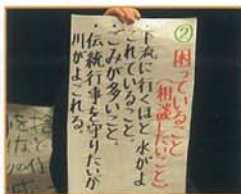 ② 困っていること
(相談したいこと)
・下流に行くほど水がよ
ごれていること。
・ごみが多いこと。
・伝統行事を守りたいが
川がよごれる。